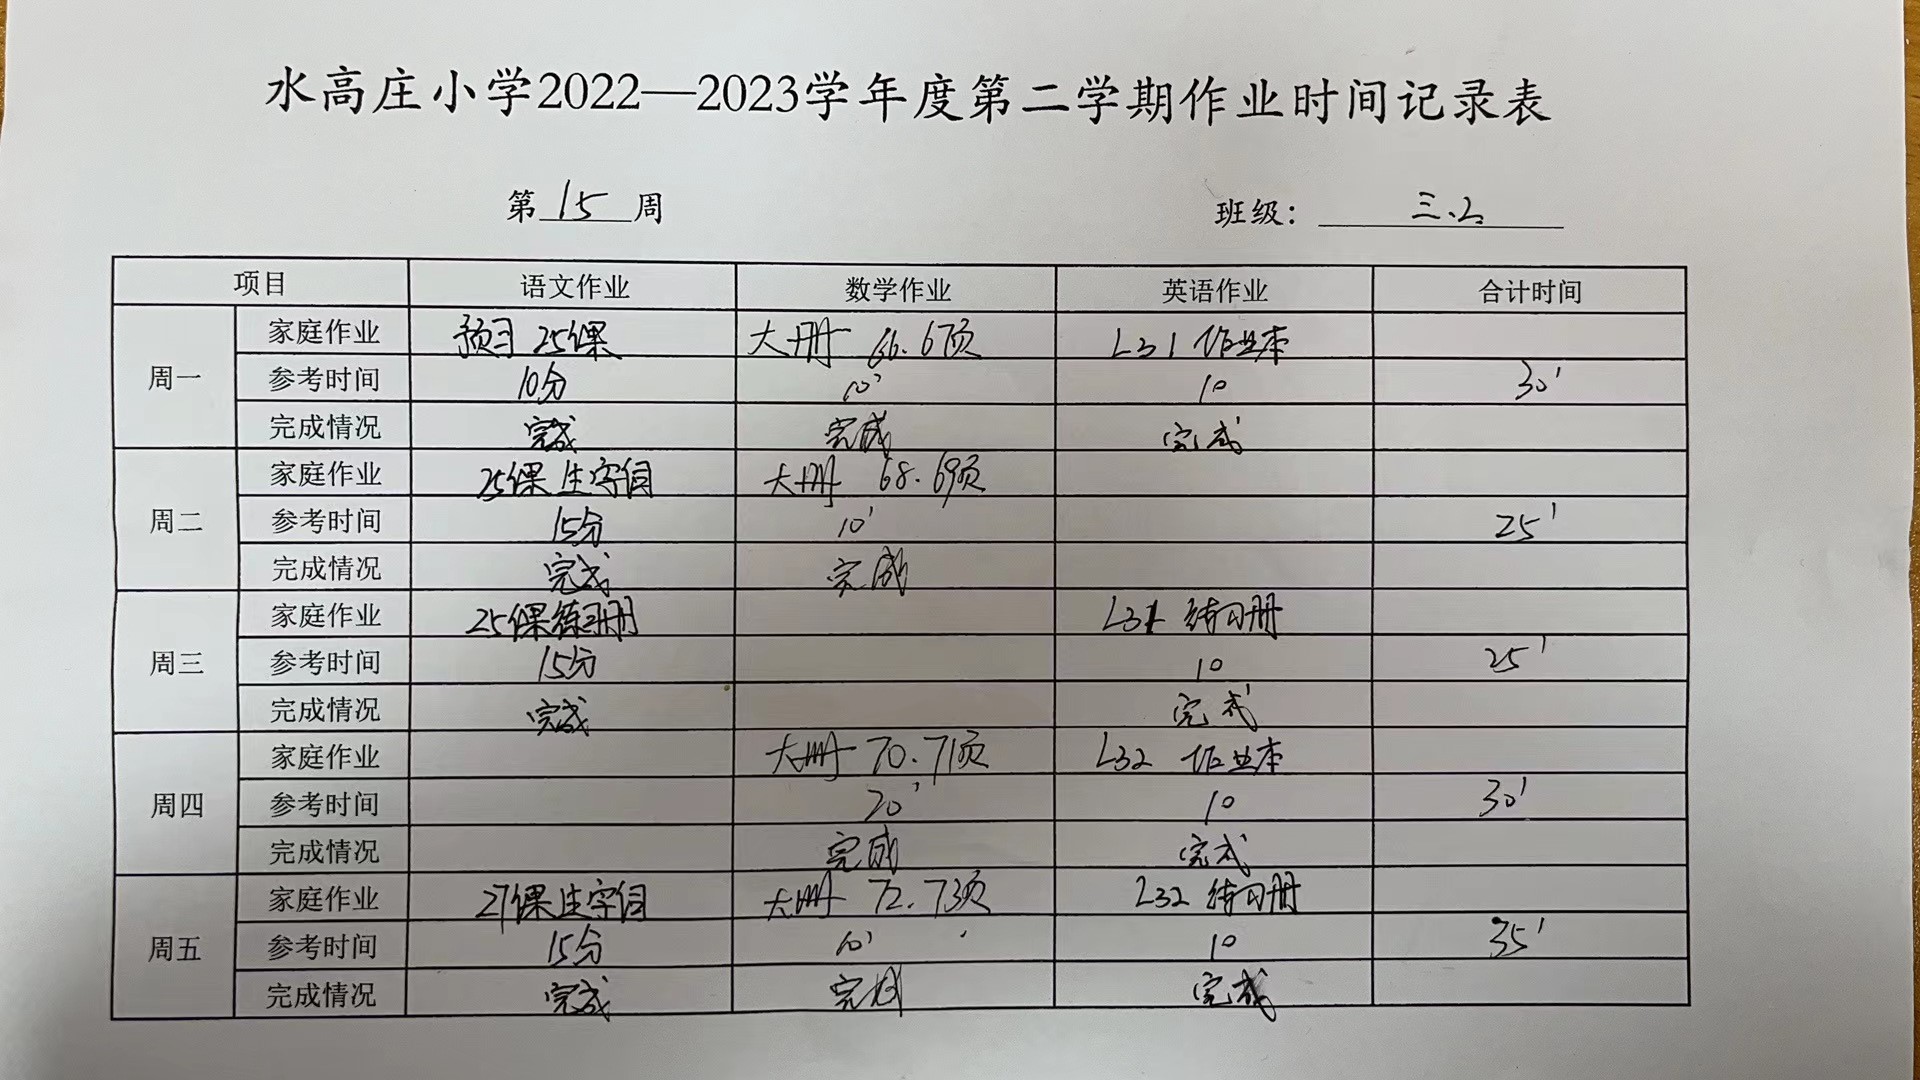 水高庄小学2022—2023学年度第二学期作业时间记录表
第 15 周 班级： 三.2
项目 语文作业 数学作业 英语作业 合计时间
周一 家庭作业 预习 25课 大册 66.67页 L31 作业本
参考时间 10分 10' 10 30'
完成情况 完成 完成 完成
周二 家庭作业 25课生字词 大册 68.69页
参考时间 15分 10' 25'
完成情况 完成 完成
周三 家庭作业 25课练习册 L31 练习册
参考时间 15分 10 25'
完成情况 完成 完成
周四 家庭作业 大册 70.71页 L32 作业本
参考时间 20' 10 30'
完成情况 完成 完成
周五 家庭作业 27课生字词 大册 72.73页 L32 练习册
参考时间 15分 10' 10 35'
完成情况 完成 完成 完成